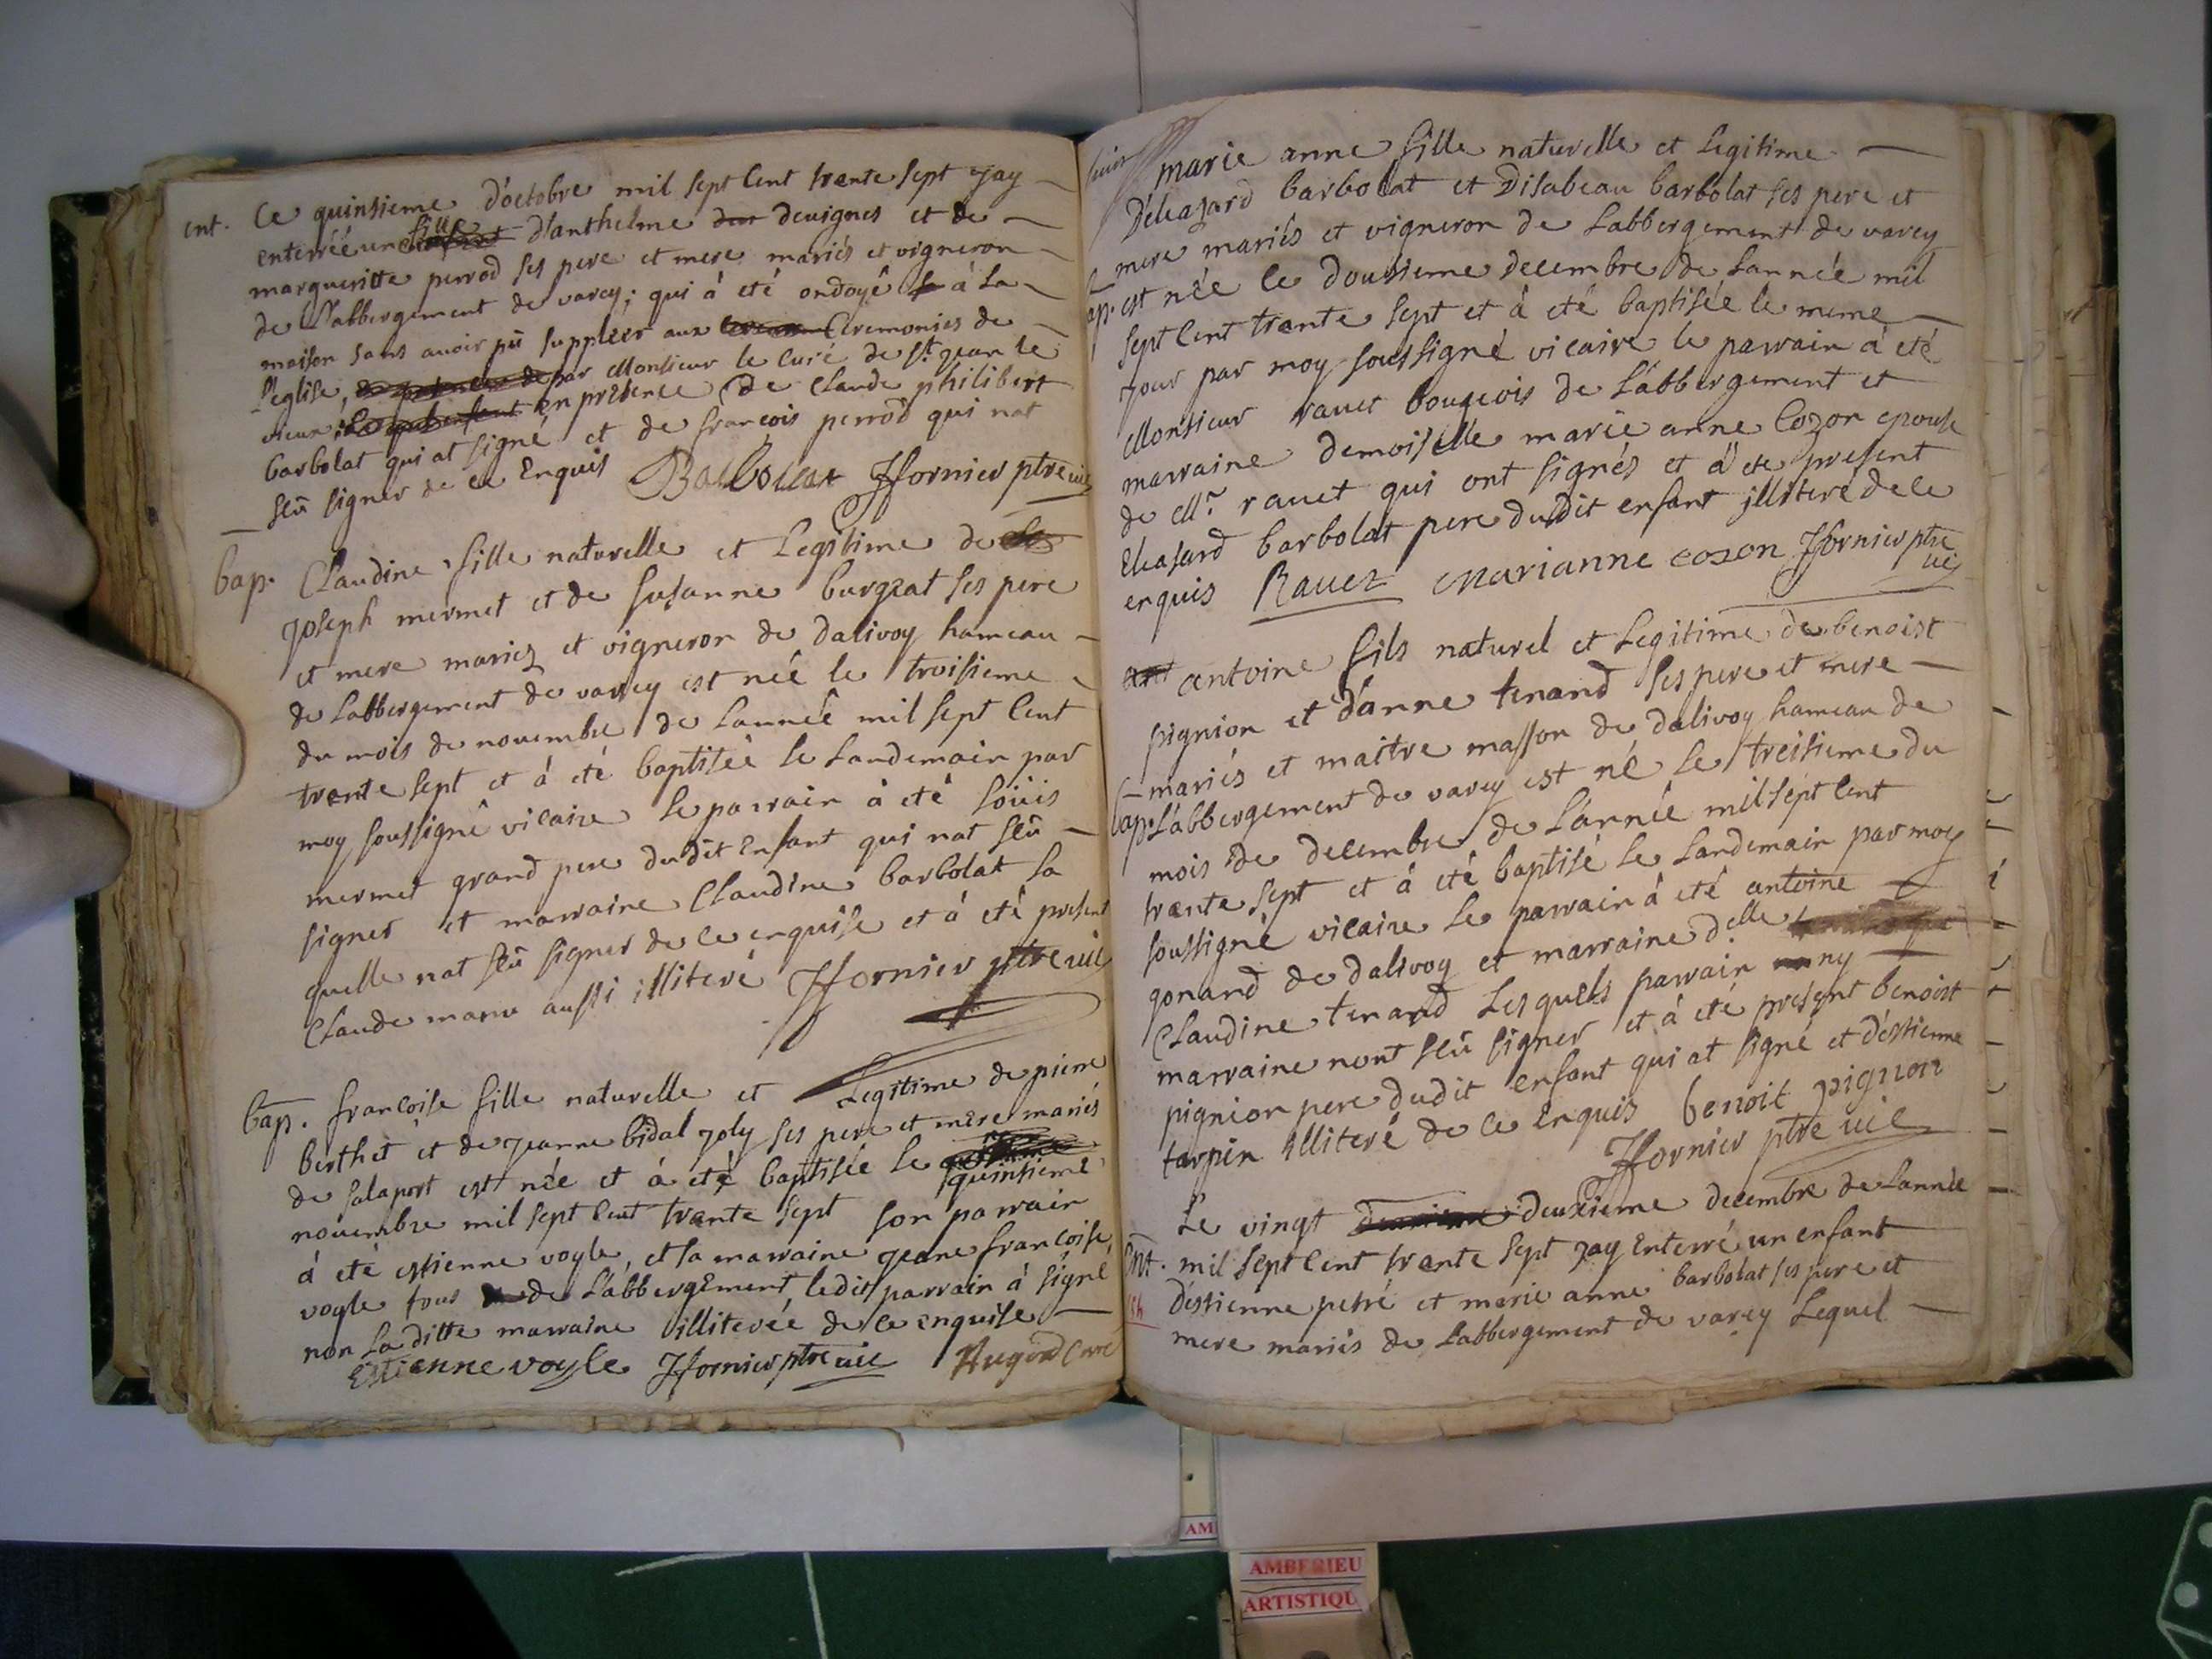 ent. Ce quinsieme d'octobre mil sept cent trante sept jay
enterréé une fille d'anthelme devignes et de
margueritte perrod ses pere et mere mariés et vigneron
de l'abbergement de varey; qui à eté ondoyé à la
maison sans avoir pû suppléer aux Ceremonies de
l'eglise, par Monsieur le Curé de st. jean le
vieux, en presence de Claude philibert
barbolat qui at signé et de françois perrod qui nat
sçû signer de ce Enquis Barbollat Fornier ptre vic
bap. Claudine fille naturelle et Legitime de
joseph mermet et de susanne burgeat ses pere
et mere mariez et vigneron de dalivoy hameau
de Labbergement de varey est néé le troisieme
du mois de novembre de Lannéé mil sept Cent
trante sept et à eté baptiséé le Landemain par
moy soussigné vicaire le parrain à eté loüis
mermet grand pere dudit Enfant qui nat sçû
signer et marraine Claudine barbolat la
quelle nat sçû signer de ce enquise et à eté present
Claude aussi illiteré Fornier ptre vic
bap. françoise fille naturelle et Legitime de pierre
berthet et de jeanne bidal joly ses pere et mere mariés
de salaport est néé et à eté baptisée le
quinsieme
novembre mil sept Cent trante sept son parrain
à eté estienne voyle, et sa marraine jeane françoise
voyle tous de L'abbergement, ledit parrain à signé
non Laditte marraine illiteréé de ce enquise
Estienne voyle Fornier ptre vic
marie anne fille naturelle et Legitime
D'eleasard barbolat et Disabeau barbolat ses pere et
mere mariés et vigneron de Labbergement de varey
bap. est néé le dousieme decembre de Lannéé mil
sept Cent trante sept et à eté baptiséé le meme
jour par moy soussigné vicaire le parrain à eté
Monsieur ravet bougeois de L'abbergement et
marraine demoiselle marie anne Cozon epouse
de Mr. ravet qui ont signés et à ete present
Eleasard barbolat pere dudit enfant illiteré de ce
enquis Ravet Marianne cozon Fornier ptre
vic
antoine fils naturel et Legitime de benoist
pignion et d'anne tenand ses pere et mere
mariés et maitre masson de dalivoy hameau de
bap. L'abbergement de varey est né le treisieme du
mois de decembre de L'année mil sept Cent
trante sept et à eté baptisé le Landemain par moy
soussigné vicaire le parrain à eté antoine
gonand de dalivoy et marraine delle
Claudine tenand Lesquels parrain ny
marraine nont sçû signer et à eté present benoist
pignion pere dudit enfant qui at signé et d'estienne
tarpin illiteré de ce Enquis benoit pignon
Fornier ptre vic
Le vingt deuxieme decembre de Lannéé
Ent. mil sept Cent trante sept jay Enterré un enfant
d'estienne petré et marie anne barbolat ses pere et
mere mariés de Labbergement de varey Lequel
AM
AMBERIEU
ARTISTIQU